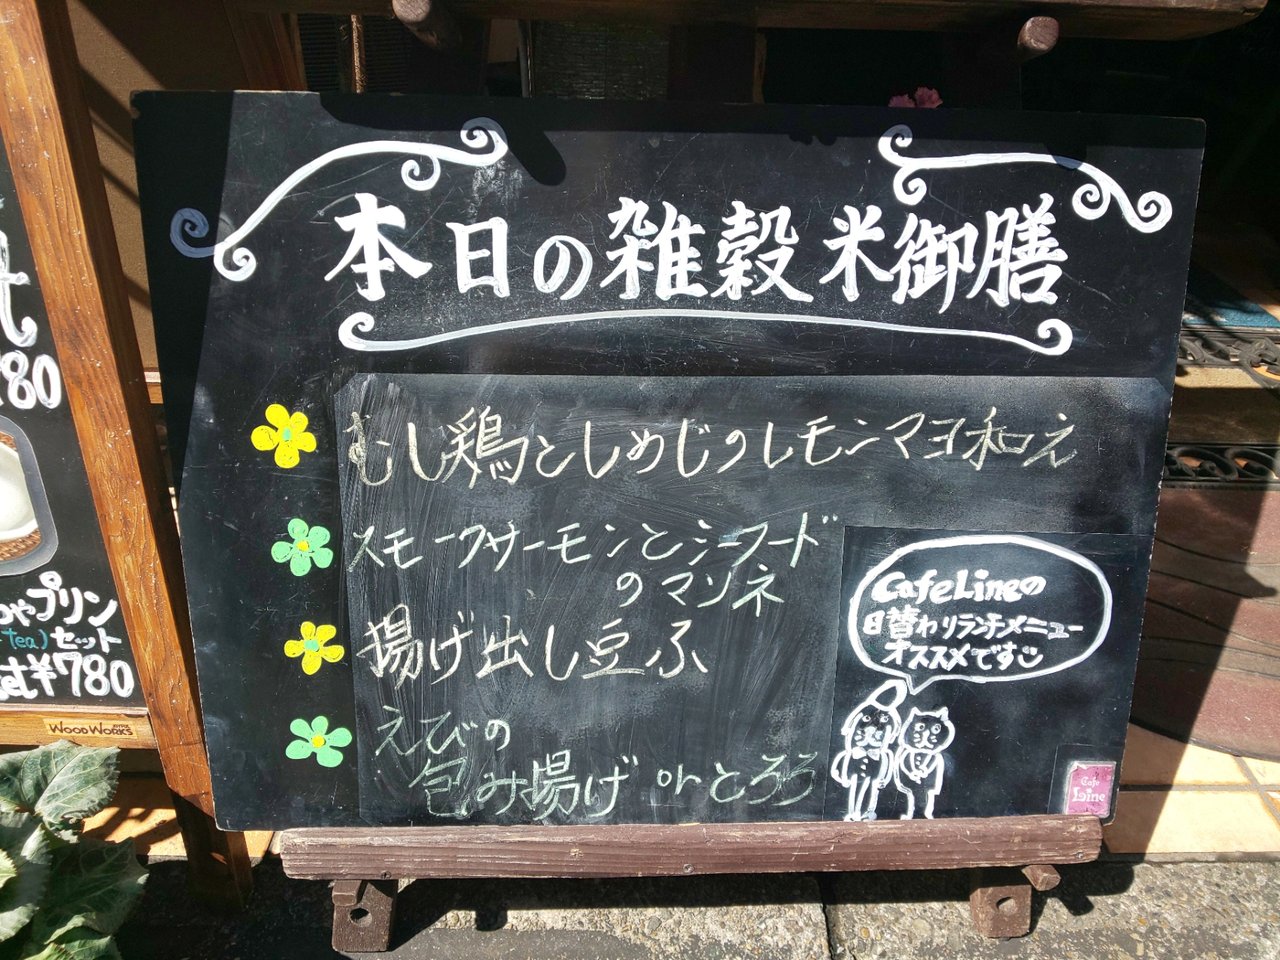 本日の雑穀米御膳
むし鶏としめじのレモンマヨ和え
スモークサーモンとシーフード
のマリネ
揚げ出し豆ふ
えびの
包み揚げ or とろろ
CafeLineの
日替わりランチメニュー
オススメです
Cafe
Line
80
プリン
tea) セット
¥780
WOOD WORKS